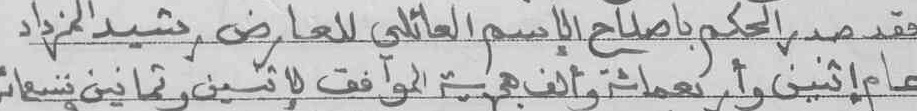 فقد صدر الحكم باصلاح الإسم العائلي للعارض رشيد المزداد
عام إثنين وأربعمائة وألف هجرية الموافق لإثنين وثمانين وتسعمائة